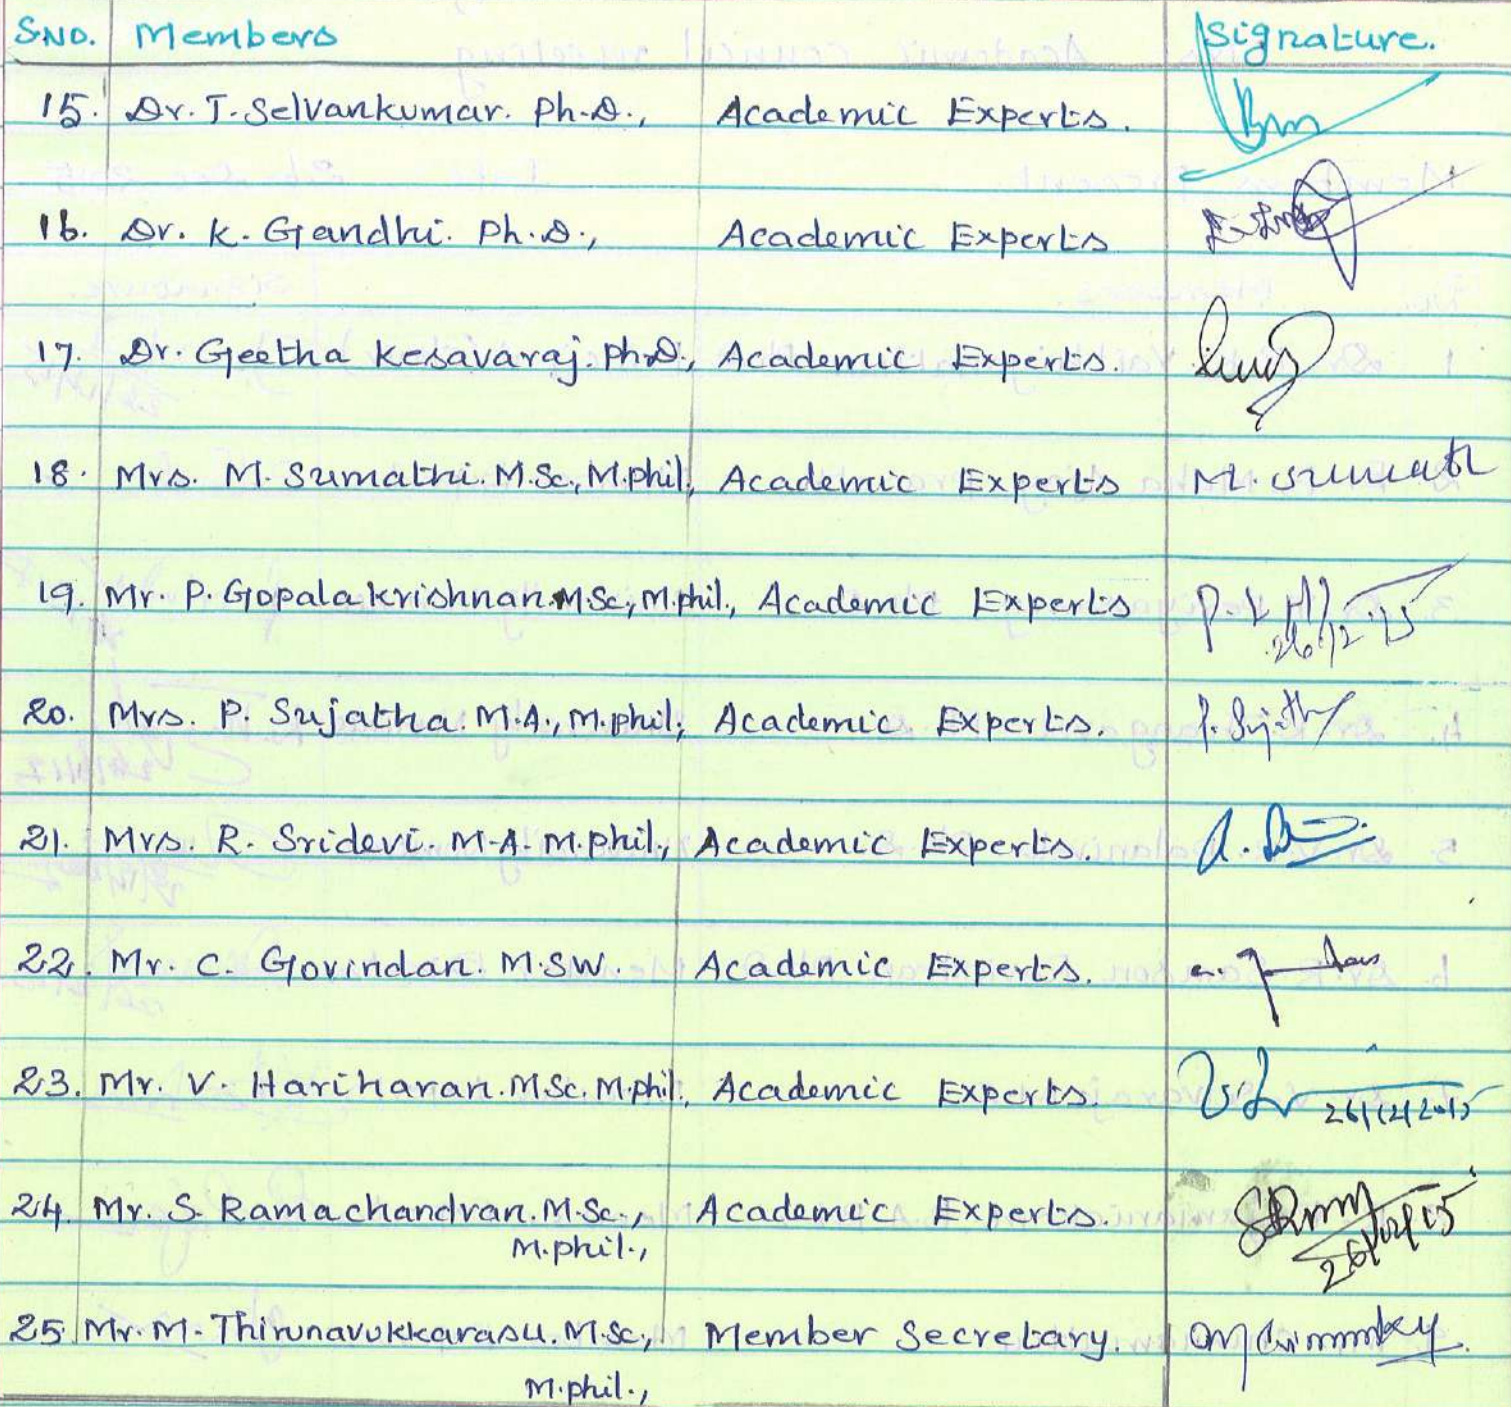 S.NO. Members Signature.
15. Dr. T. Selvankumar. Ph.D., Academic Experts.
16. Dr. K. Gandhi. Ph.D., Academic Experts
17. Dr. Geetha Kesavaraj. Ph.D., Academic Experts.
18. Mrs. M. Sumathi. M.Sc., M.phil, Academic Experts M. Sumathi
19. Mr. P. Gopalakrishnan. M.Sc., M.phil., Academic Experts
26.12.15
20. Mrs. P. Sujatha. M.A., M.phil; Academic Experts. P. Sujatha
21. Mrs. R. Sridevi. M.A. M.phil., Academic Experts.
22. Mr. C. Govindan. M.S.W. Academic Experts.
23. Mr. V. Hariharan. M.Sc. M.phil., Academic Experts. 26/12/2015
24. Mr. S. Ramachandran. M.Sc., Academic Experts.
M.phil., 26/12/15
25. Mr. M. Thirunavukkarasu. M.Sc., Member Secretary.
M.phil.,